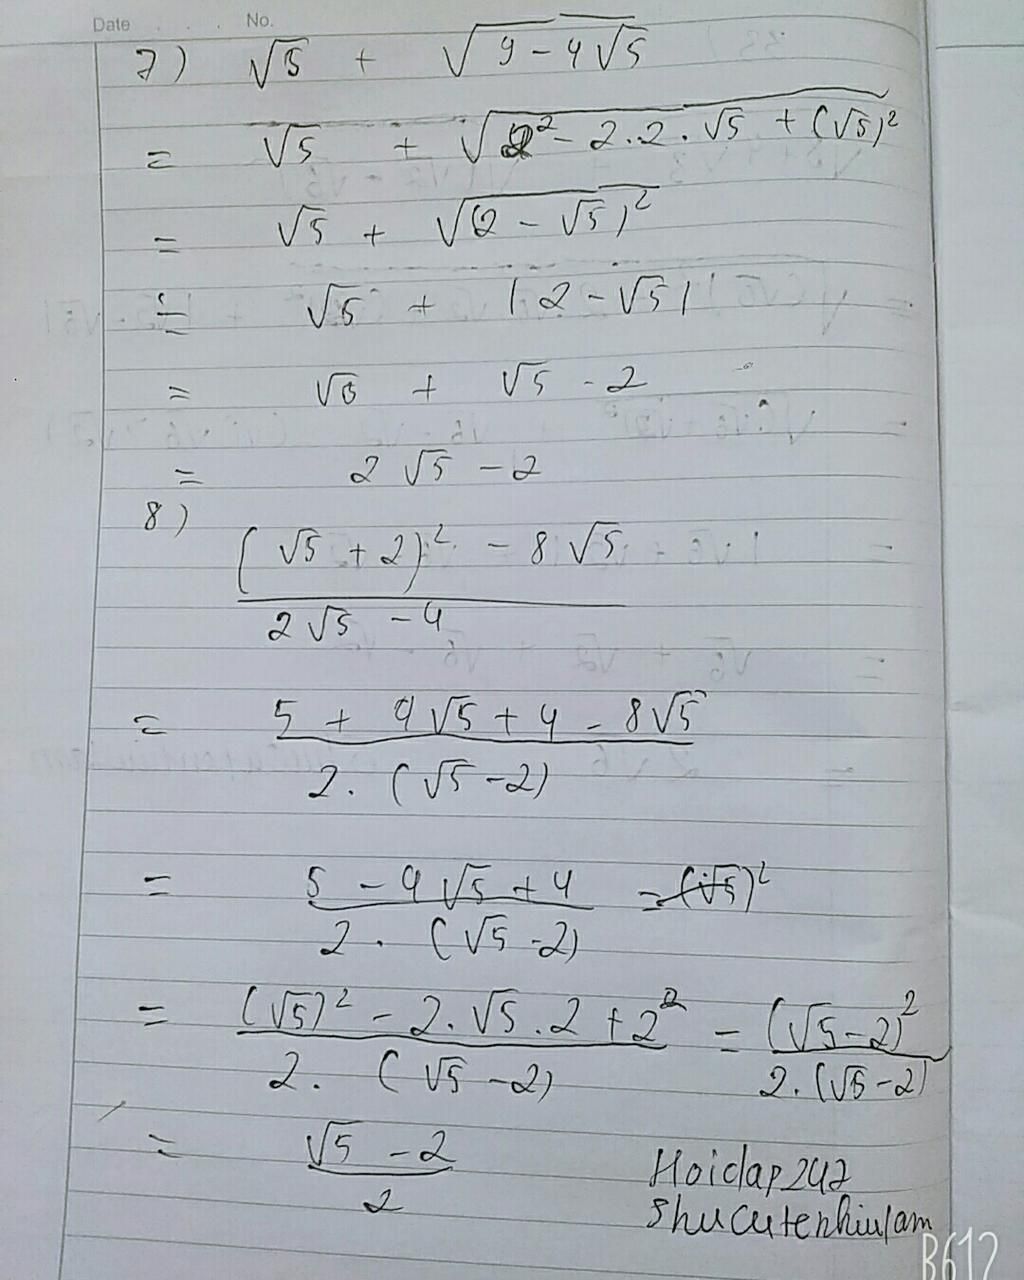 Date No.
7) √5 + √(9 - 4√5)
= √5 + √(2² - 2.2.√5 + (√5)²)
= √5 + √(2 - √5)²
= √5 + |2 - √5|
= √5 + √5 - 2
= 2√5 - 2
8)
(√5 + 2)² - 8√5
2√5 - 4
= 5 + 4√5 + 4 - 8√5
2. (√5 - 2)
= 5 - 4√5 + 4 = (√5)²
2. (√5 - 2)
= (√5)² - 2.√5.2 + 2² = (√5 - 2)²
2. (√5 - 2) 2.(√5 - 2)
= √5 - 2
2
Hoidap247
B612